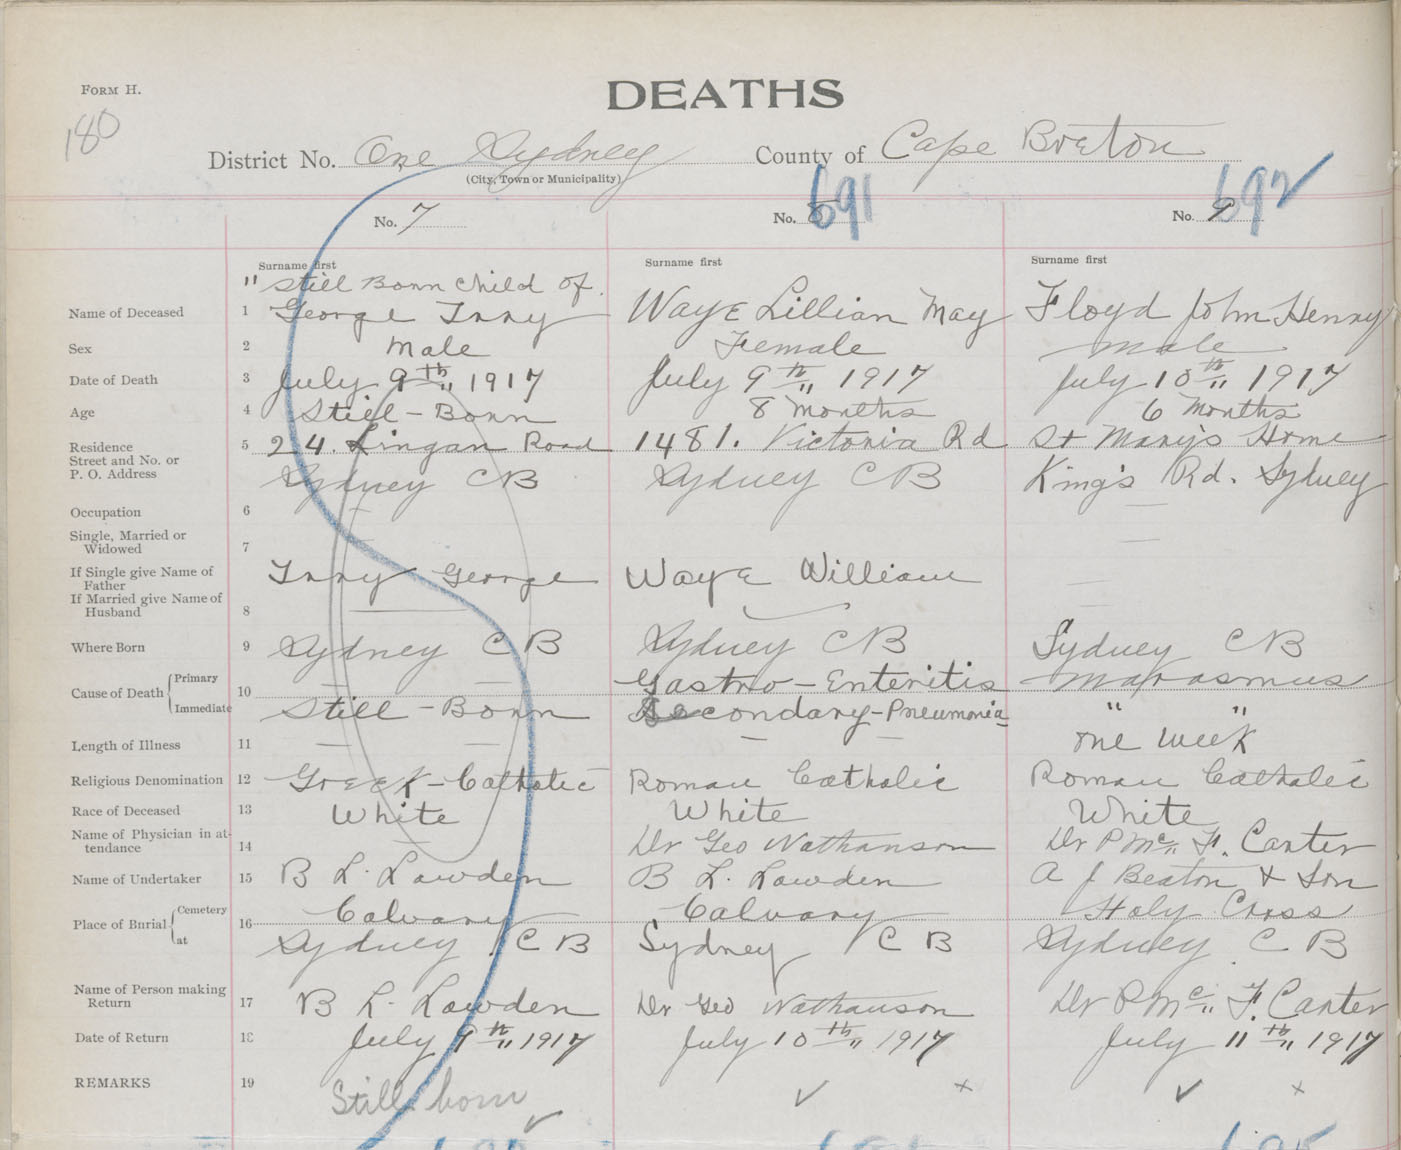 FORM H.
DEATHS
180
District No. One Sydney County of Cape Breton
(City, Town or Municipality)
No. 7
No. 8 691
No. 9 692
Surname first
Surname first
Surname first
" Still Born Child of
Name of Deceased 1 George Inny Waye Lillian May Floyd John Henry
Sex 2 Male Female Male
Date of Death 3 July 9th " 1917 July 9th " 1917 July 10th " 1917
Age 4 Still-Born 8 Months 6 Months
Residence 5 24. Lingan Road 1481. Victoria Rd St Mary's Home
Street and No. or
P. O. Address Sydney CB Sydney CB King's Rd. Sydney
Occupation 6 —
Single, Married or
Widowed 7
If Single give Name of
Father Inny George Waye William
If Married give Name of
Husband 8
Where Born 9 Sydney CB Sydney CB Sydney CB
Cause of Death Primary 10 Gastro-Enteritis Marasmus
Immediate Still-Born Secondary-Pneumonia " "
Length of Illness 11 — — — — one week
Religious Denomination 12 Greek-Catholic Roman Catholic Roman Catholic
Race of Deceased 13 White White White
Name of Physician in at-
tendance 14 — Dr Geo Nathanson Dr P Mc " F. Carter
Name of Undertaker 15 B L. Lowden B L. Lowden A J Beaton & Son
Place of Burial Cemetery 16 Calvary Calvary Holy Cross
at Sydney CB Sydney CB Sydney CB
Name of Person making
Return 17 B L. Lowden Dr Geo Nathanson Dr P Mc " F. Carter
Date of Return 18 July 9th " 1917 July 10th " 1917 July 11th " 1917
REMARKS 19 Still born ✓ ✓ x ✓ x